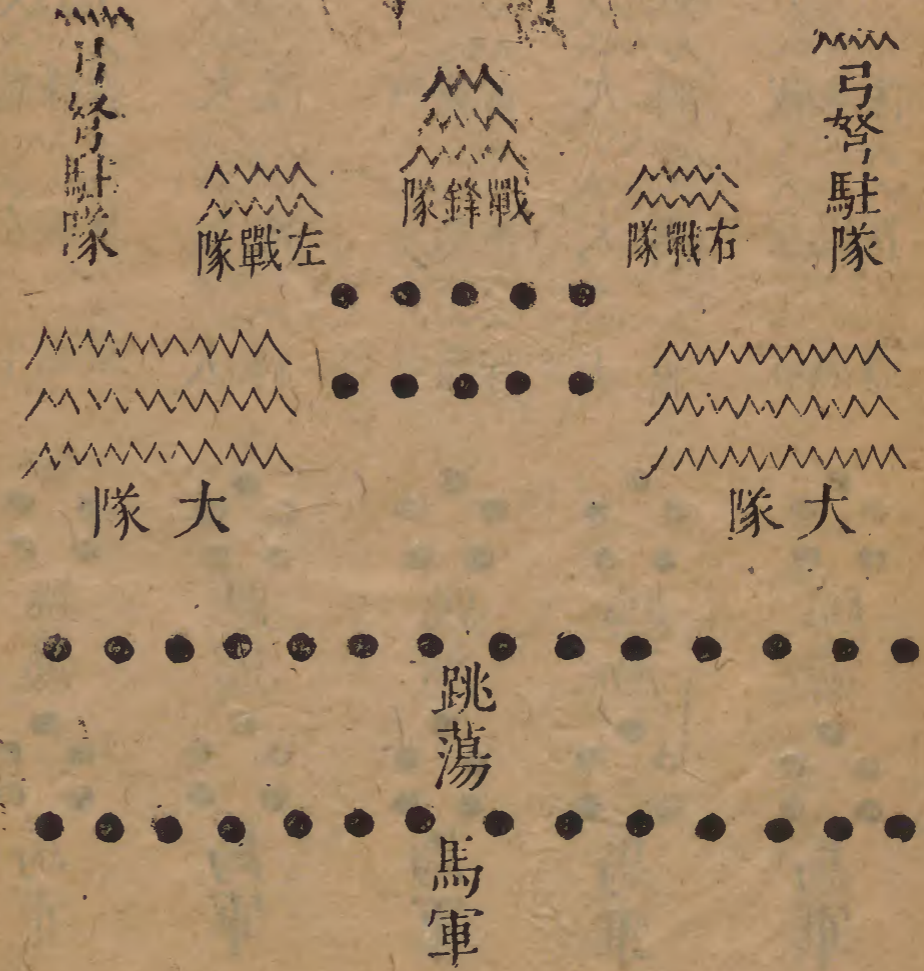 弓弩駐隊
右戰隊
戰鋒隊
左戰隊
弓弩駐隊
大隊
大隊
跳蕩
馬軍